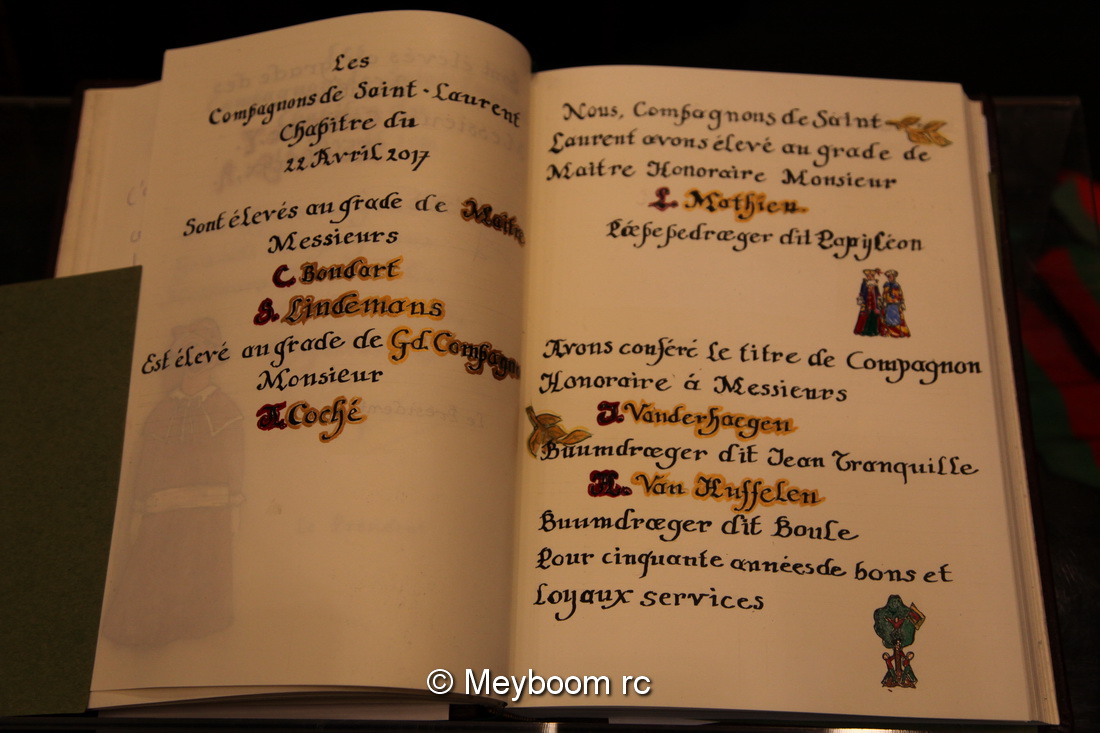 Les
Compagnons de Saint-Laurent
Chapitre du
22 Avril 2017
Sont élevés au grade de Maître
Messieurs
C. Boudart
S. Lindemans
Est élevé au grade de Gd. Compagnon
Monsieur
Coché
Nous, Compagnons de Saint-
Laurent avons élevé au grade de
Maitre Honoraire Monsieur
L. Mathieu
Pöepedræger dit Papyléon
Avons conféré le titre de Compagnon
Honoraire á Messieurs
J. Vanderhaegen
Buumdræger dit Jean Tranquille
Van Huffelen
Buumdræger dit Boule
Pour cinquante années de bons et
Loyaux services
© Meyboom rc